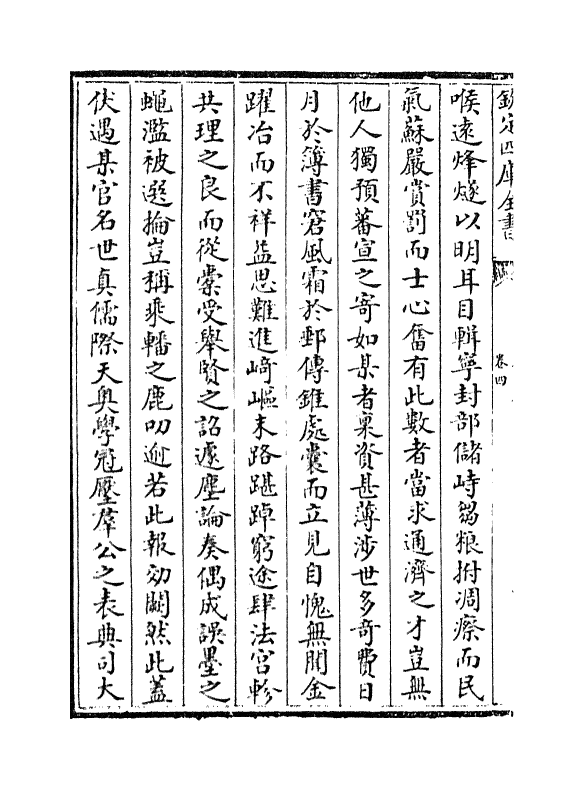 欽定四庫全書
卷四
喉遠烽燧以明耳目輯寧封部儲峙芻粮拊凋瘵而民
氣蘇嚴賞罰而士心奮有此數者當求通濟之才豈無
他人獨預蕃宣之寄如某者稟資甚薄涉世多奇費日
月於簿書窘風霜於郵傳錐處囊而立見自愧無聞金
躍冶而不祥益思難進﨑嶇末路踸踔窮途肆法宫軫
共理之良而從橐受舉賢之詔遽塵論奏偶成誤墨之
蠅濫被選掄豈稱乘轓之鹿叨逾若此報効闕然此蓋
伏遇某官名世真儒際天奥學冠壓羣公之表典司大